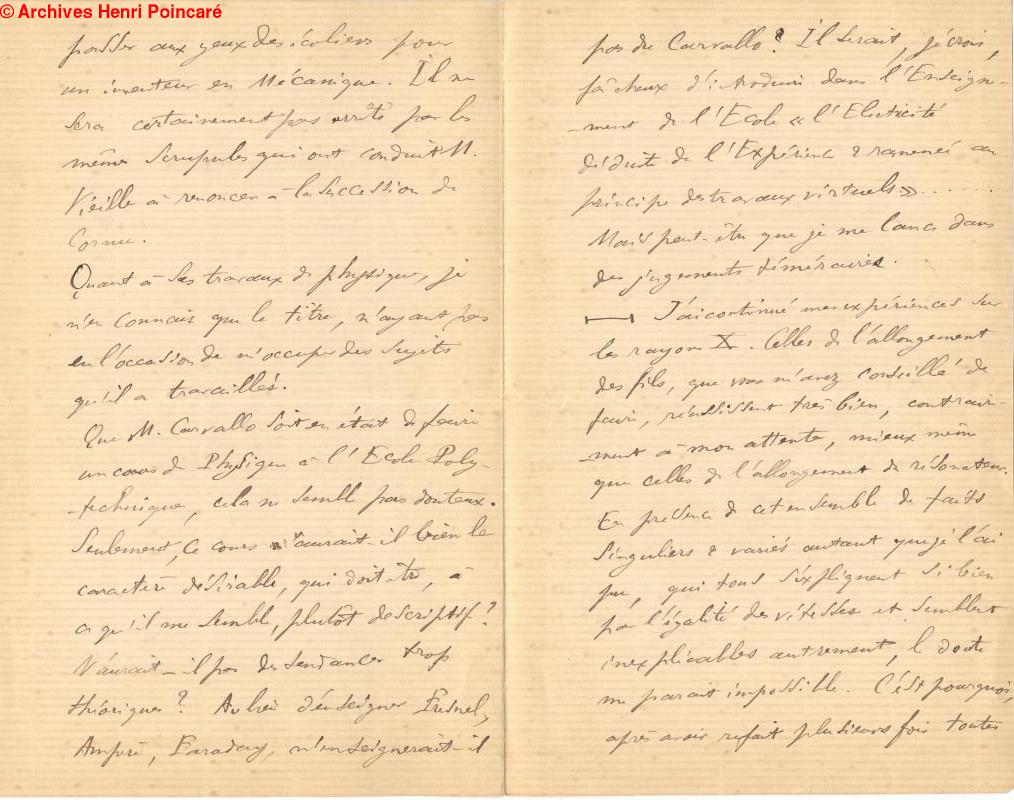 © Archives Henri Poincaré
passer aux yeux des écoliers pour
un inventeur en Mécanique. Il ne
sera certainement pas arrêté par les
mêmes scrupules qui ont conduit M.
Vieille à renoncer à la succession de
Cornu.
Quant à ses travaux de physique, je
n'en connais que le titre, n'ayant pas
eu l'occasion de m'occuper des sujets
qu'il a travaillés.
Que M. Carvallo soit en état de faire
un cours de Physique à l'Ecole Poly-
-technique, cela ne semble pas douteux.
Seulement, ce cours aurait-il bien le
caractère désirable, qui doit être, à
ce qu'il me semble, plutôt descriptif?
N'aurait-il pas des tendances trop
théoriques? Au lieu d'enseigner Fresnel,
Ampère, Faraday, n'enseignerait-il
pas du Carvallo? Il serait, je crois,
fâcheux d'introduire dans l'Enseigne-
-ment de l'Ecole « l'Electricité
déduite de l'Expérience & ramenée au
principe des travaux virtuels » .......
Mais peut-être que je me lance dans
des jugements téméraires.
J'ai continué mes expériences sur
les rayons X. Celles de l'allongement
des fils, que vous m'avez conseillé de
faire, réussissent très bien, contraire-
-ment à mon attente, mieux même
que celles de l'allongement de résonateur.
En présence de cet ensemble de faits
singuliers & variés autant que je l'ai
pu, qui tous s'expliquent si bien
par l'égalité des vitesses et semblent
inexplicables autrement, le doute
me paraît impossible. C'est pourquoi,
après avoir refait plusieurs fois toutes